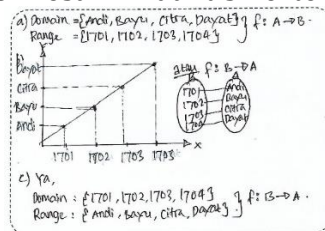 a) Domain = {Andi, Bayu, Citra, Dayat} } f : A → B.
Range = {1701, 1702, 1703, 1704}
b)
Y
Dayat
Citra
Bayu
Andi
1701 1702 1703 1703 X
atau f : B → A
1701 Andi
1702 Bayu
1703 Citra
1704 Dayat
c) Ya,
Domain : {1701, 1702, 1703, 1704} } f : B → A.
Range : {Andi, Bayu, Citra, Dayat}